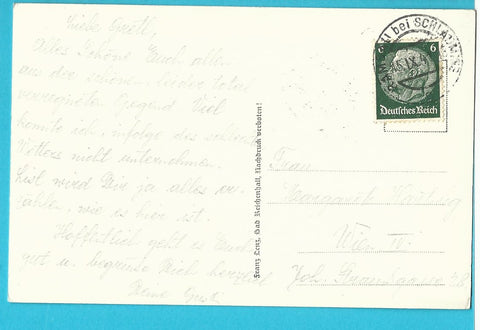 Liebe Gretl,
Alles Schöne Euch allen
aus der schönen leider total
verregneten Gegend. Viel
konnte ich, infolge des schlechten
Wetters nicht unternehmen.
wird Dir ja alles er-
zählen, wie es hier ist.
Hoffentlich geht es Euch
gut u. begrüsse Dich herzlich
Deine
Franz Lenz, Bad Reichenhall, Nachdruck verboten!
bei
6 6
Deutsches Reich
Frau
Margaret
Wien IV.
Joh. Straussgasse 28